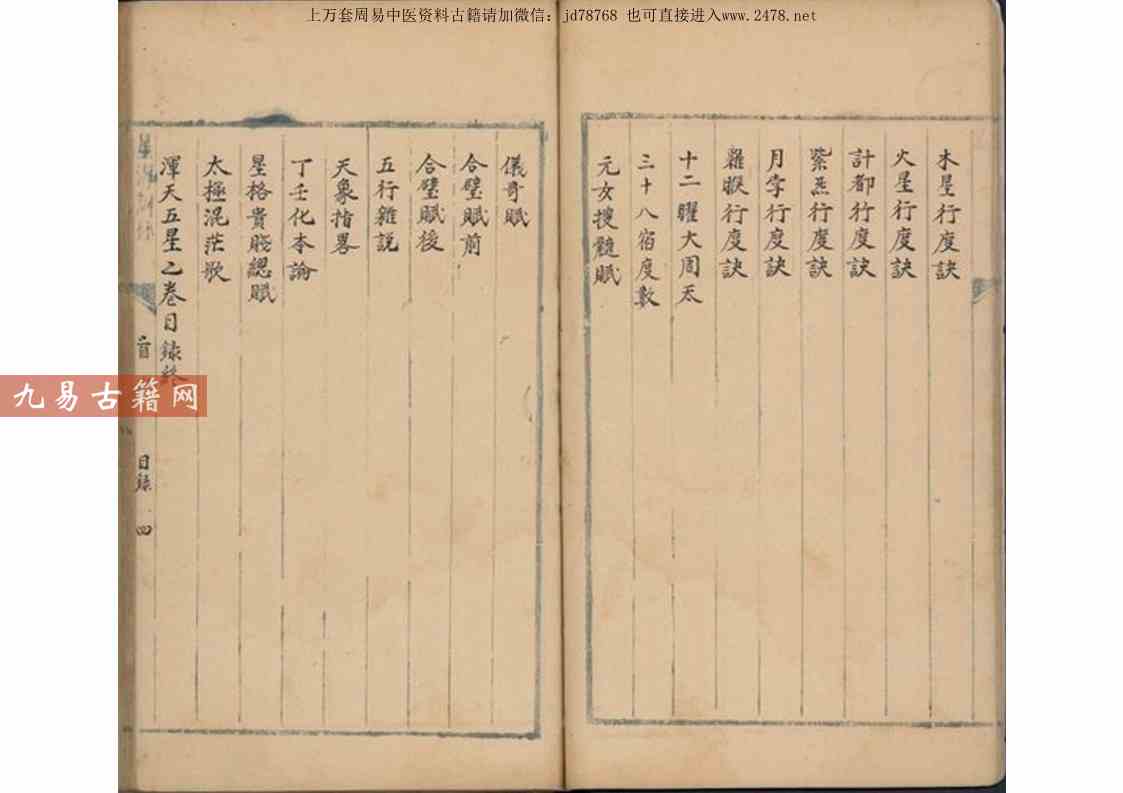 上万套周易中医资料古籍请加微信：jd78768 也可直接进入www.2478.net
木星行度訣
火星行度訣
計都行度訣
紫炁行度訣
月孛行度訣
羅睺行度訣
十二曜大周天
二十八宿度數
元女搜髓賦
儀奇賦
合璧賦前
合璧賦後
五行雜説
天象指畧
丁壬化本論
星格貴賤總賦
太極混茫歌
渾天五星之卷目録終
首
目録
四
九易古籍网